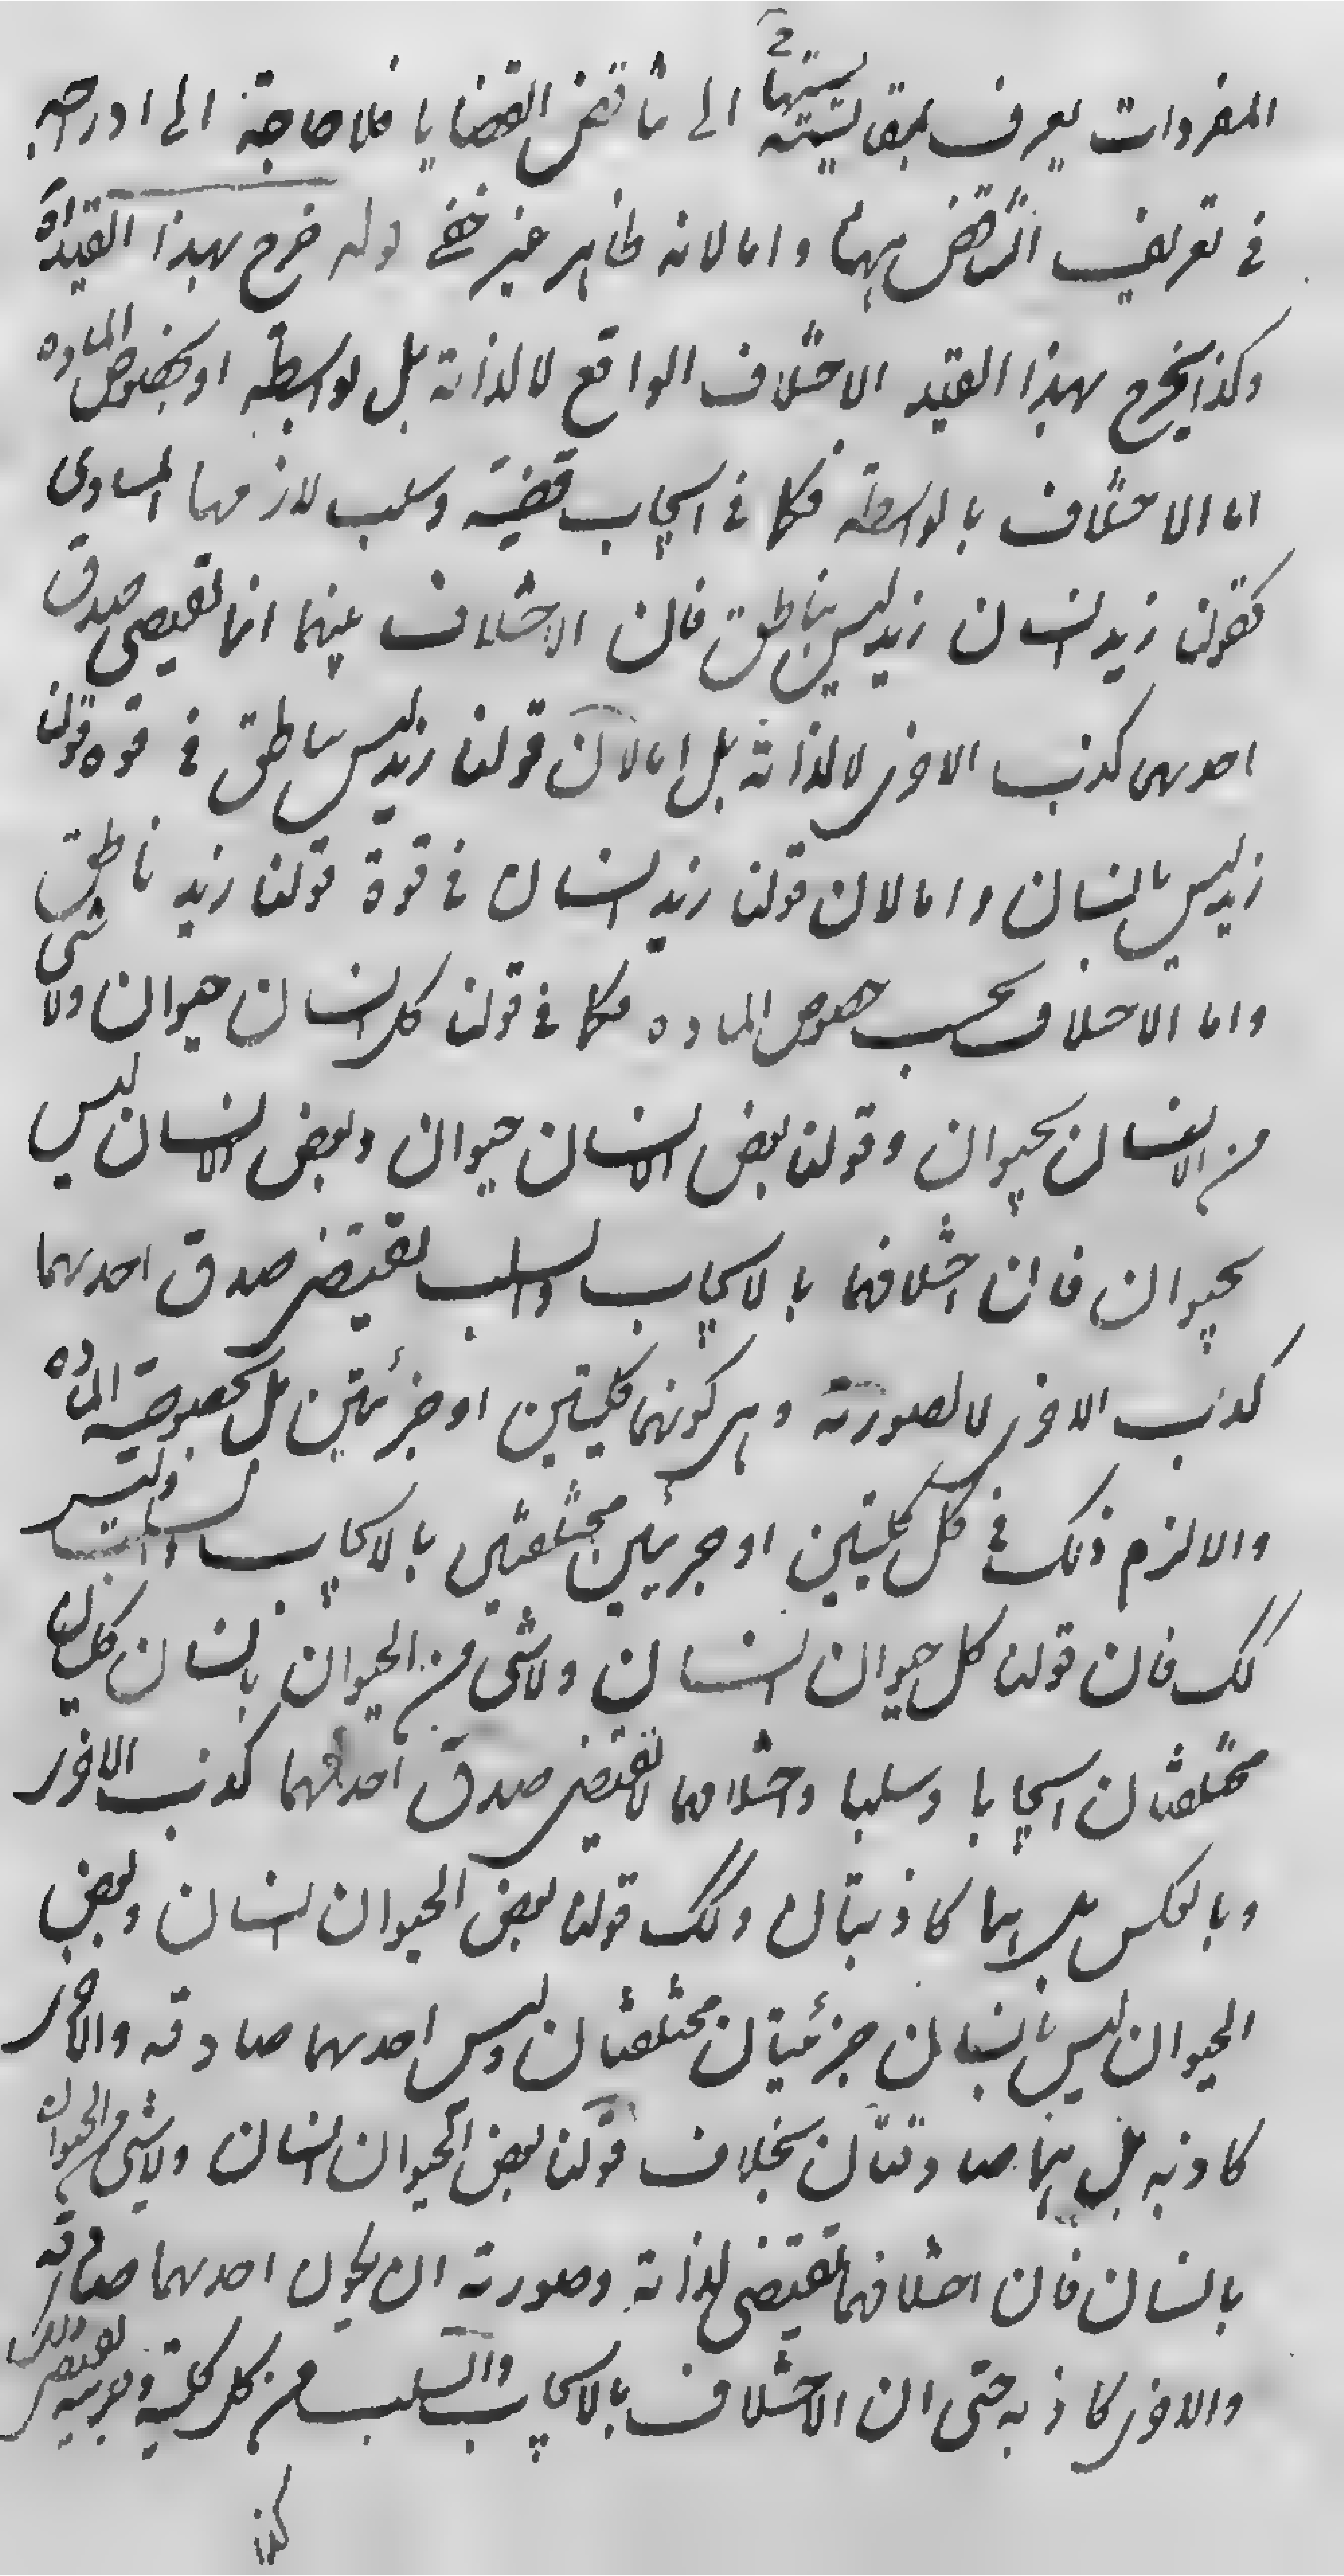 المفردات يعرف بمقايسته الى تناقض القضايا فلا حاجة الى ادراجه
في تعريف التناقض ههنا واما لانه ظاهر غير خفي قوله خرج بهذا القيد اه
وكذا يخرج بهذا القيد الاختلاف الواقع لا لذاته بل بواسطة او بخصوص المادة
اما الاختلاف بالواسطة فكما في ايجاب قضية وسلب لازمها المساوى
كقولنا زيد انسان زيد ليس بناطق فان الاختلاف بينهما انما يقتضى صدق
احديهما كذب الاخرى لا لذاته بل اما لان قولنا زيد ليس بناطق في قوة قولنا
زيد ليس بانسان واما لان قولنا زيد انسان في قوة قولنا زيد ناطق
واما الاختلاف بحسب خصوص المادة فكما في قولنا كل انسان حيوان ولا شئ
من الانسان بحيوان وقولنا بعض الانسان حيوان وبعض الانسان ليس
بحيوان فان اختلافهما بالايجاب والسلب يقتضى صدق احديهما
كذب الاخرى لا لصورته وهى كونهما كليتين او جزئيتين بل بخصوصية المادة
والا لزم ذلك في كل كليتين او جزئيتين مختلفتين بالايجاب والسلب وليس
كك فان قولنا كل حيوان انسان ولا شئ من الحيوان بانسان كليتان
مختلفتان ايجابا وسلبا واختلافهما لا يقتضى صدق احديهما كذب الاخرى
وبالعكس بل هما كاذبتان وكك قولنا بعض الحيوان انسان وبعض
الحيوان ليس بانسان جزئيتان مختلفتان وليس احديهما صادقه والاخرى
كاذبه بل هما صادقتان بخلاف قولنا بعض الحيوان انسان ولا شئ من الحيوان
بانسان فان اختلافهما يقتضى لذاته وصورته ان يكون احديهما صادقه
والاخرى كاذبه حتى ان الاختلاف بالايجاب والسلب من كل كلية وجزئيه يقتضى ذلك